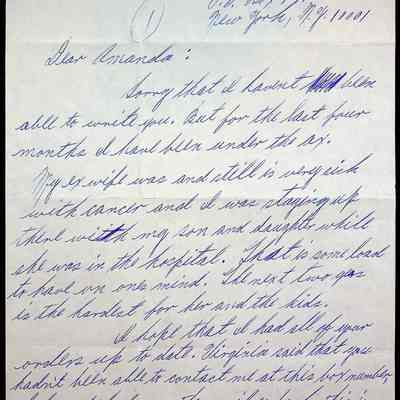 (1)
New York, N.Y. 10001
Dear Amanda:
Sorry that I havent been
able to write you. But for the last four
months I have been under the ax.
My ex wife was and still is very sick
with cancer and I was staying up
there with my son and daughter while
she was in the hospital. That is some load
to have on ones mind. The next two yrs
is the hardest for her and the kids.
I hope that I had all of your
orders up to date. Virginia said that you
hadn't been able to contact me at this box number,